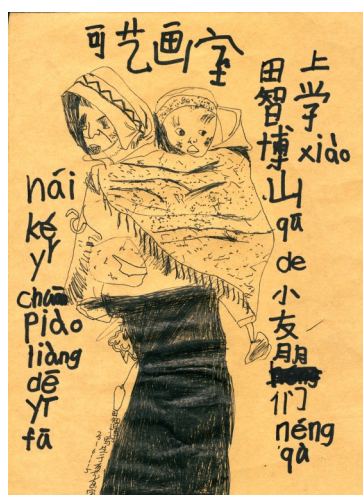 可艺画室
上学xiào
田智博山qū de小友朋们néng qà
nái ké yǐ chuān piào liàng dē yī fā